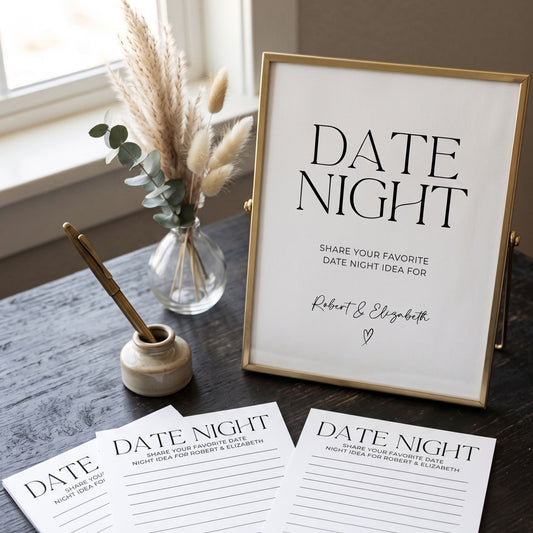 DATE
NIGHT
SHARE YOUR FAVORITE
DATE NIGHT IDEA FOR
Robert & Elizabeth
DATE NIGHT
SHARE YOUR FAVORITE DATE
NIGHT IDEA FOR ROBERT & ELIZABETH
DATE NIGHT
SHARE YOUR FAVORITE DATE
NIGHT IDEA FOR ROBERT & ELIZABETH
DATE
SHARE YOUR
NIGHT IDEA FOR